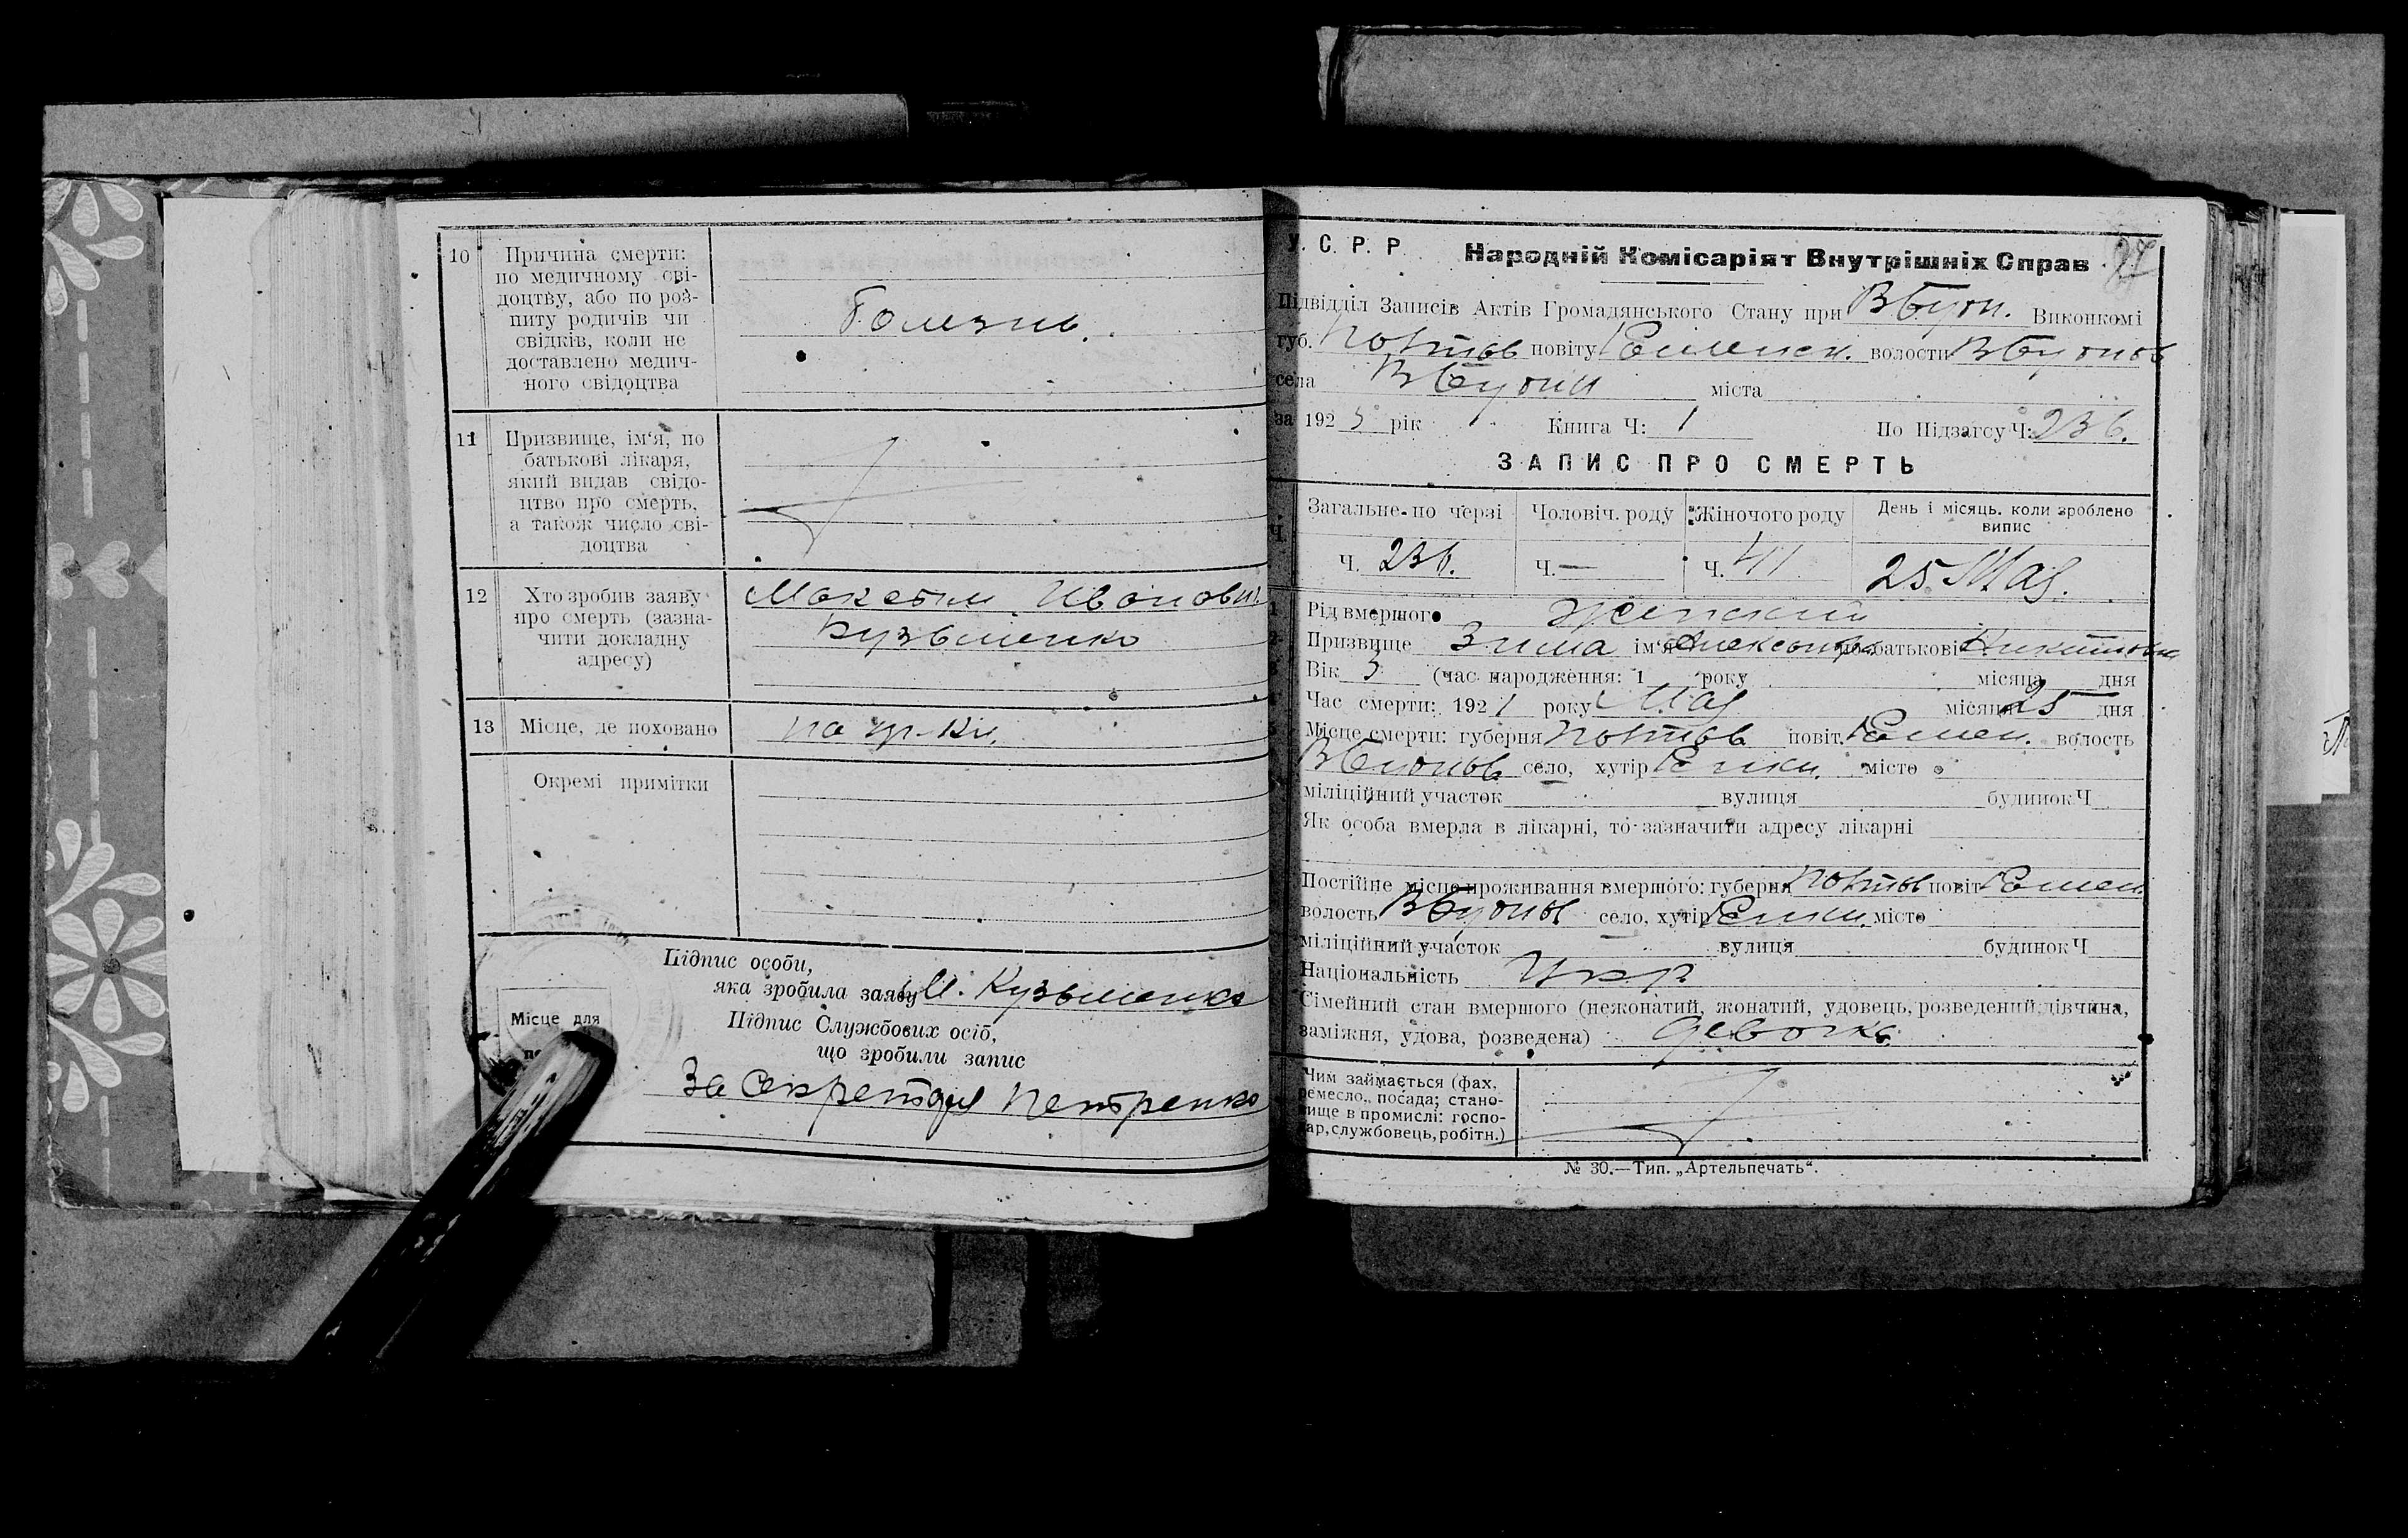 10 Причина смерти:
по медичному сві-
доцтву, або по роз-
питу родичів чи
свідків, коли не
доставлено медич-
ного свідоцтва
Болезнь.
11 Призвище, ім'я, по
батькові лікаря,
який видав свідо-
цтво про смерть,
а також число сві-
доцтва
12 Хто зробив заяву
про смерть (зазна-
чити докладну
адресу)
Максим Иванович
Кузьменко
13 Місце, де поховано на гр. кл.
Окремі примітки
Підпис особи,
яка зробила заяву М. Кузьменко
Підпис Службових осіб,
що зробили запис
Місце для
За Секретаря Петренко
У. С. Р. Р. Народній Комісаріят Внутрішніх Справ 97
Підвідділ Записів Актів Громадянського Стану при Виконкомі
губ. Полтав повіту Роменск. волости
села міста
за 192 рік Книга Ч: 1 По Підзагсу Ч: 236.
ЗАПИС ПРО СМЕРТЬ
Ч. Загальне по черзі Чоловіч. роду Жіночого роду День і місяць. коли зроблено
випис
Ч. 236. Ч. — Ч. 25. Мая.
1 Рід вмершого Женский
2 Призвище Зима ім'я Александра по батькові Никитовна
Вік 3 (час народження: 1 року місяца дня
Час смерти: 1921 року Мая місяця 25 дня
Місце смерти: губерня Полтав повіт. Ромен. волость
село, хутір місто
міліційний участок вулиця будинок Ч
Як особа вмерла в лікарні, то зазначити адресу лікарні
Постійне місце проживання вмершого: губерня Полтав повіт Ромен.
волость село, хутір місто
міліційний участок вулиця будинок Ч
Національність Укр
Сімейний стан вмершого (нежонатий, жонатий, удовець, розведений, дівчина,
заміжня, удова, розведена) девочка
Чим займається (фах,
ремесло, посада; стано-
вище в промислі: госпо-
дар, службовець, робітн.)
№ 30.—Тип. „Артельпечать“.